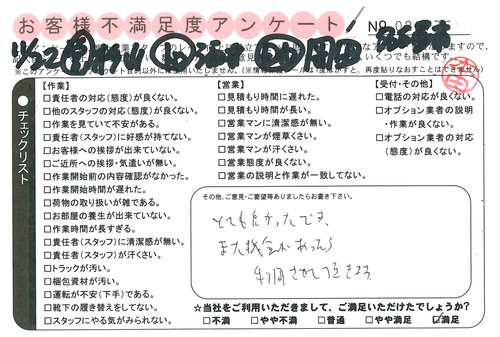 お客様不満足度アンケート
11/22
※このアンケ
チェックリスト
【作業】
□責任者の対応(態度)が良くない。
□他のスタッフの対応(態度)が良くない。
□作業を見ていて不安がある。
□責任者(スタッフ)に好感が持てない。
□お客様への挨拶が出来ていない。
□ご近所への挨拶・気遣いが無い。
□作業開始前の内容確認がなかった。
□作業開始時間が遅れた。
□荷物の取り扱いが雑である。
□お部屋の養生が出来ていない。
□作業時間が長すぎる。
□責任者(スタッフ)に清潔感が無い。
□責任者(スタッフ)が汗くさい。
□トラックが汚い。
□梱包資材が汚い。
□運転が不安(下手)である。
□靴下の履き替えをしてない。
□スタッフにやる気がみられない。
【営業】
□見積もり時間に遅れた。
□見積もり時間が長い。
□営業マンに清潔感が無い。
□営業マンが煙草くさい。
□営業マンが汗くさい。
□営業態度が良くない。
□営業の説明と作業が一致してない。
【受付・その他】
□電話の対応が良くない。
□オプション業者の説明
・作業が良くない。
□オプション業者の対応
(態度)が良くない。
その他、ご意見・ご要望等ありましたらお書き下さい。
とても良かったです。
また機会があったら
利用させて頂きます。
☆当社をご利用いただきまして、ご満足いただけたでしょうか?
□不満 □やや不満 □普通 □やや満足 ☑満足